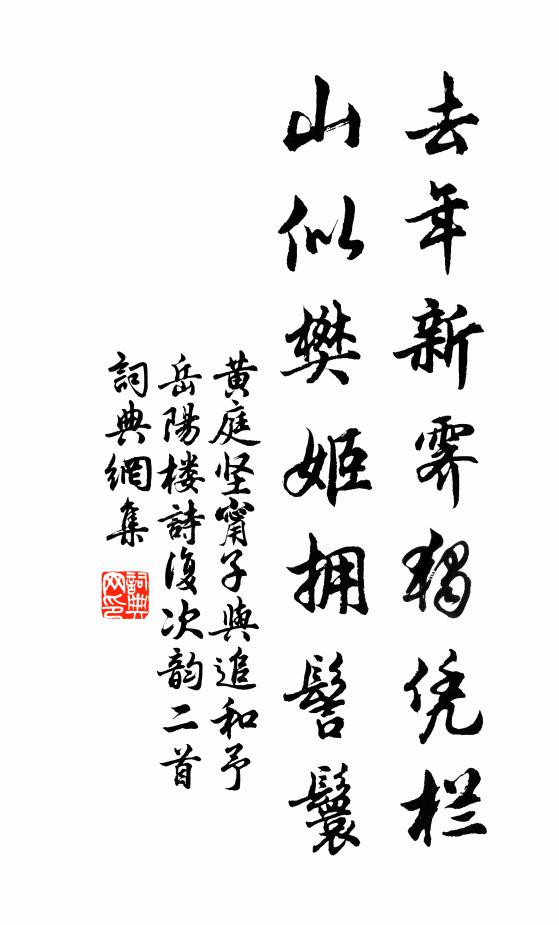 去年新霽独凭栏
山似樊姬拥髻鬟
黄庭坚甯子與追和予
岳陽楼詩復次韵二首
詞典網集
詞典网印